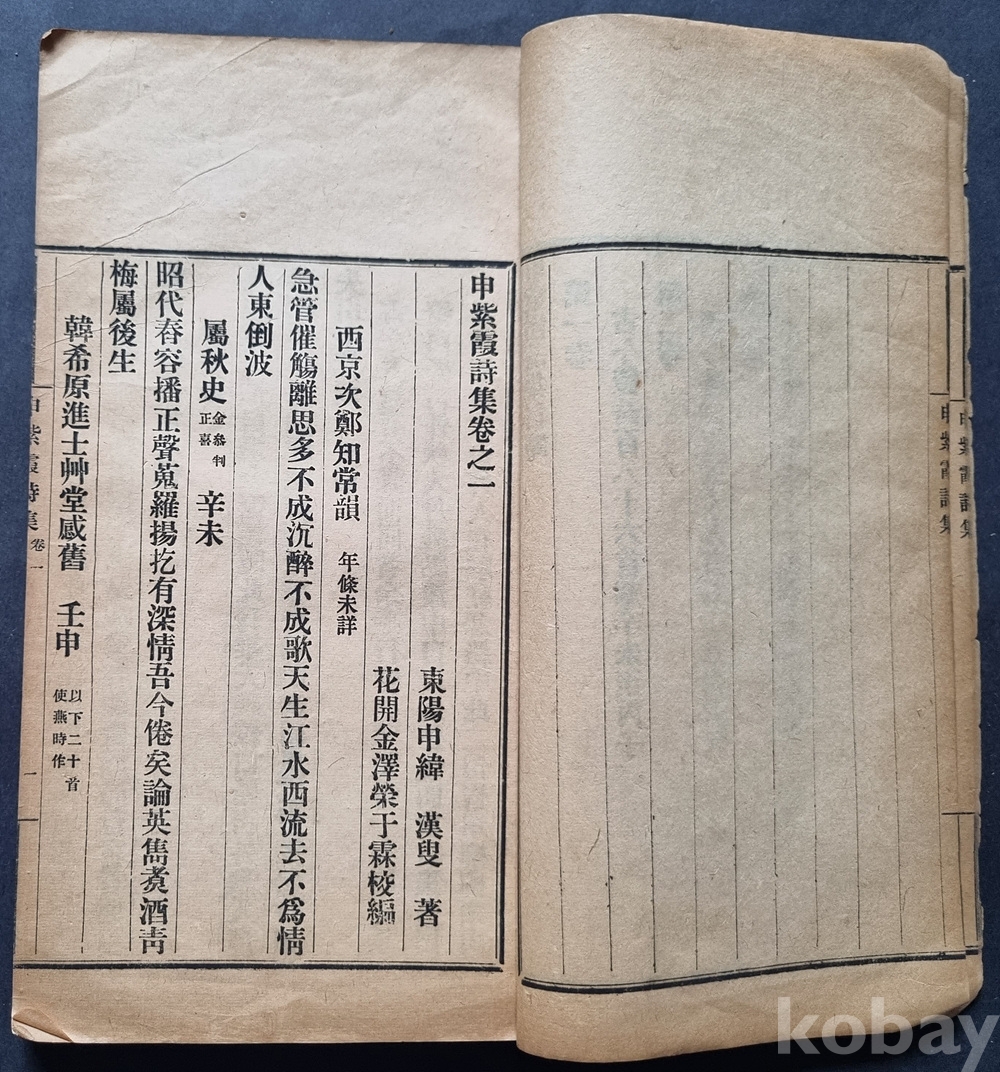 申紫霞詩集
申紫霞詩集
申紫霞詩集卷之一
東陽申緯 漢叟 著
花開金澤榮于霖校編
西京次鄭知常韻 年條未詳
急管催觴離思多不成沉醉不成歌天生江水西流去不爲情
人東倒波
屬秋史 金參判正喜 辛未
昭代春容播正聲蒐羅揚扢有深情吾今倦矣論英雋煑酒靑
梅屬後生
韓希原進士艸堂感舊 壬申 以下二十首使燕時作
申紫霞詩集 卷一 一
kobay